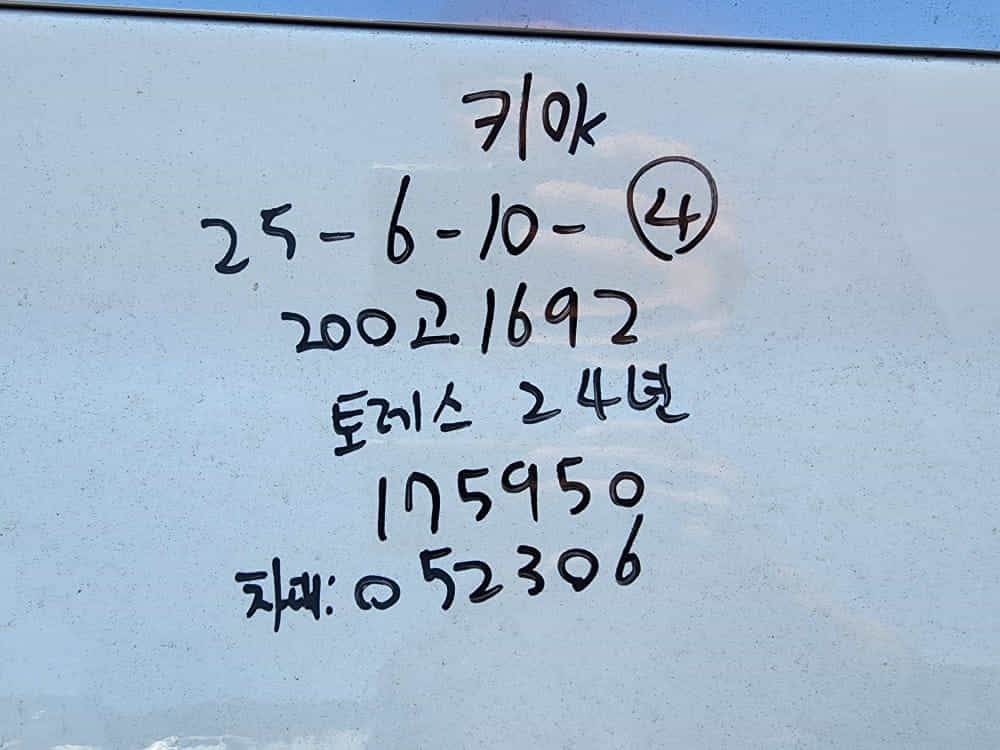 키 ok
25-6-10-④
200고1692
토레스 24년
175950
차대: 052306